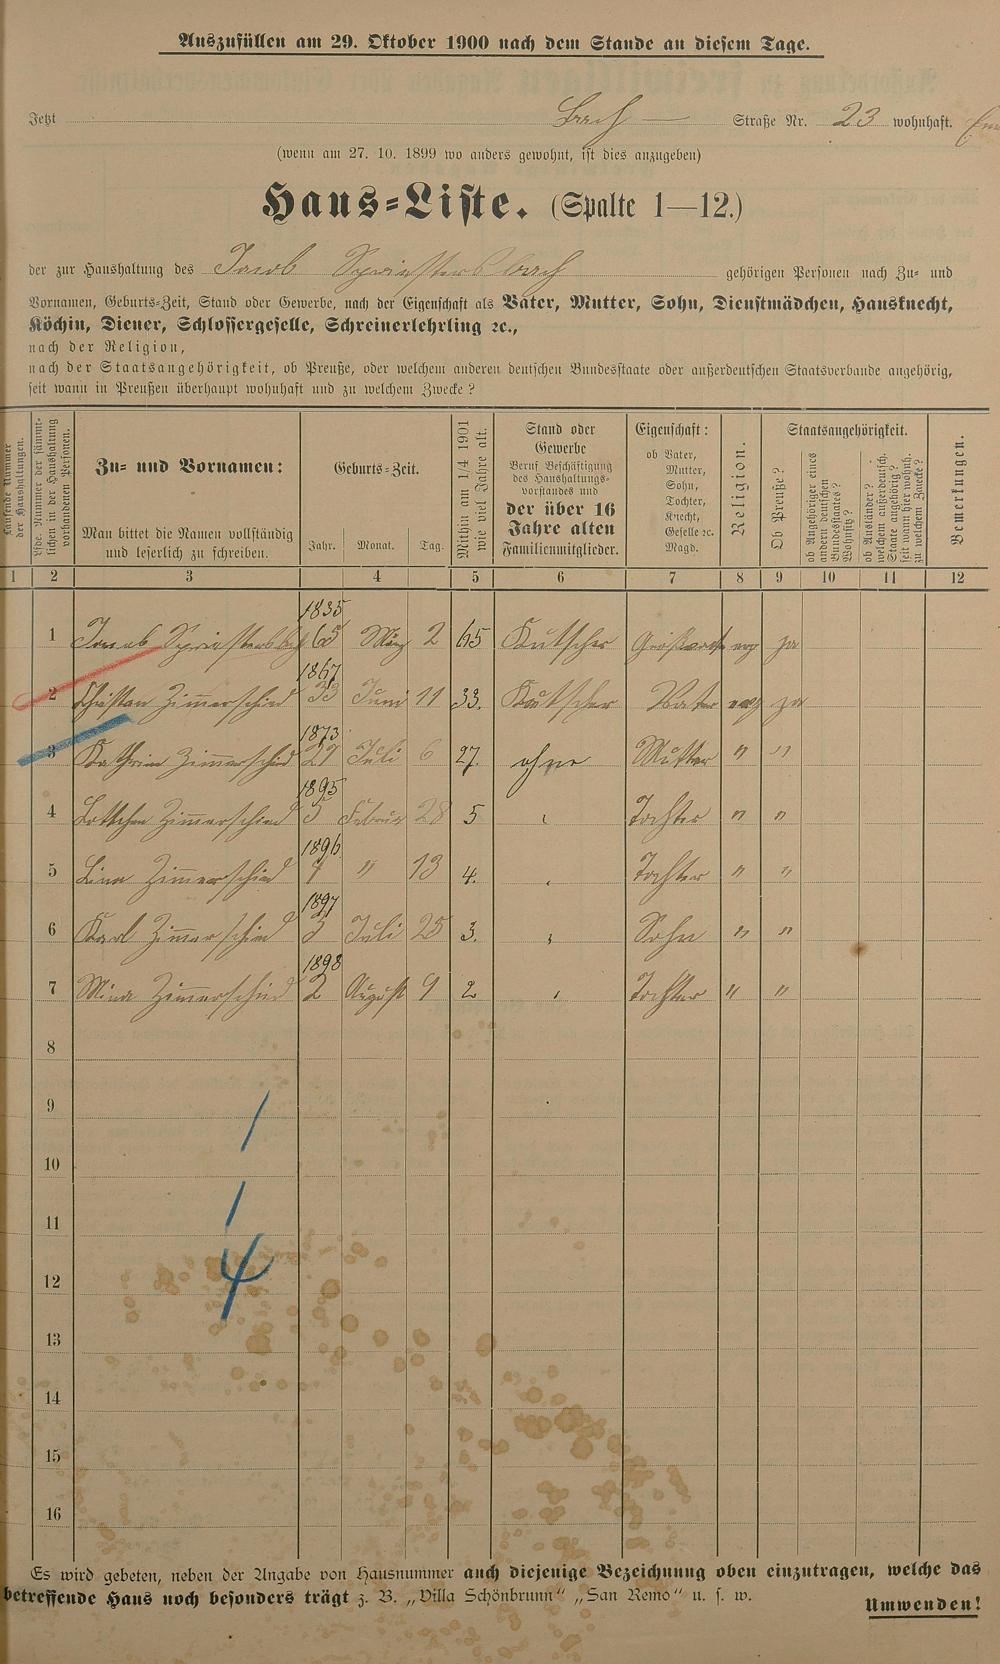 Auszufüllen am 29. Oktober 1900 nach dem Stande an diesem Tage.
Jetzt Bach — Straße Nr. 23 wohnhaft.
(wenn am 27. 10. 1899 wo anders gewohnt, ist dies anzugeben)
Haus=Liste. (Spalte 1—12.)
der zur Haushaltung des Jacob Spriestersbach gehörigen Personen nach Zu= und
Vornamen, Geburts=Zeit, Stand oder Gewerbe, nach der Eigenschaft als Vater, Mutter, Sohn, Dienstmädchen, Hausknecht,
Köchin, Diener, Schlossergeselle, Schreinerlehrling ꝛc.,
nach der Religion,
nach der Staatsangehörigkeit, ob Preuße, oder welchem anderen deutschen Bundesstaate oder außerdeutschen Staatsverbande angehörig,
seit wann in Preußen überhaupt wohnhaft und zu welchem Zwecke?
Laufende Nummer der Haushaltungen.
Lfde. Nummer der sämmtlichen in der Haushaltung vorhandenen Personen.
Zu= und Vornamen:
Man bittet die Namen vollständig
und leserlich zu schreiben.
Geburts=Zeit.
Jahr. Monat. Tag.
Mithin am 1/4 1901
wie viel Jahre alt.
Stand oder
Gewerbe
Beruf Beschäftigung
des Haushaltungs=
vorstandes und
der über 16
Jahre alten
Familienmitglieder.
Eigenschaft:
ob Vater,
Mutter,
Sohn,
Tochter,
Knecht,
Geselle ꝛc.
Magd.
Religion.
Staatsangehörigkeit.
Ob Preuße?
ob Angehöriger eines
andern deutschen
Bundesstaates?
Wohnsitz?
ob Ausländer?
welchem außerdeutsch.
Staate angehörig?
seit wann hier wohnh.
zu welchem Zwecke?
Bemerkungen.
1 2 3 4 5 6 7 8 9 10 11 12
1835
1 Jacob Spriestersbach 65 März 2 65 Kutscher Großvater evg ja
1867
2 Christian Zimmerschied 33 Juni 11 33. Kutscher Vater evg ja
1873
3 Kathrine Zimmerschied 27 Juli 6 27. ohne Mutter " "
1895
4 Lottchen Zimmerschied 5 Februar 28 5 Tochter " "
1896
5 Lina Zimmerschied " 13 4. Tochter " "
1897
6 Karl Zimmerschied 3 Juli 25 3. Sohn " "
1898
7 Mina Zimmerschied 2 August 9 2 Tochter " "
8
9
10
11
12
13
14
15
16
Es wird gebeten, neben der Angabe von Hausnummer auch diejenige Bezeichnung oben einzutragen, welche das
betreffende Haus noch besonders trägt z. B. „Villa Schönbrunn" „San Remo" u. s. w.
Umwenden!